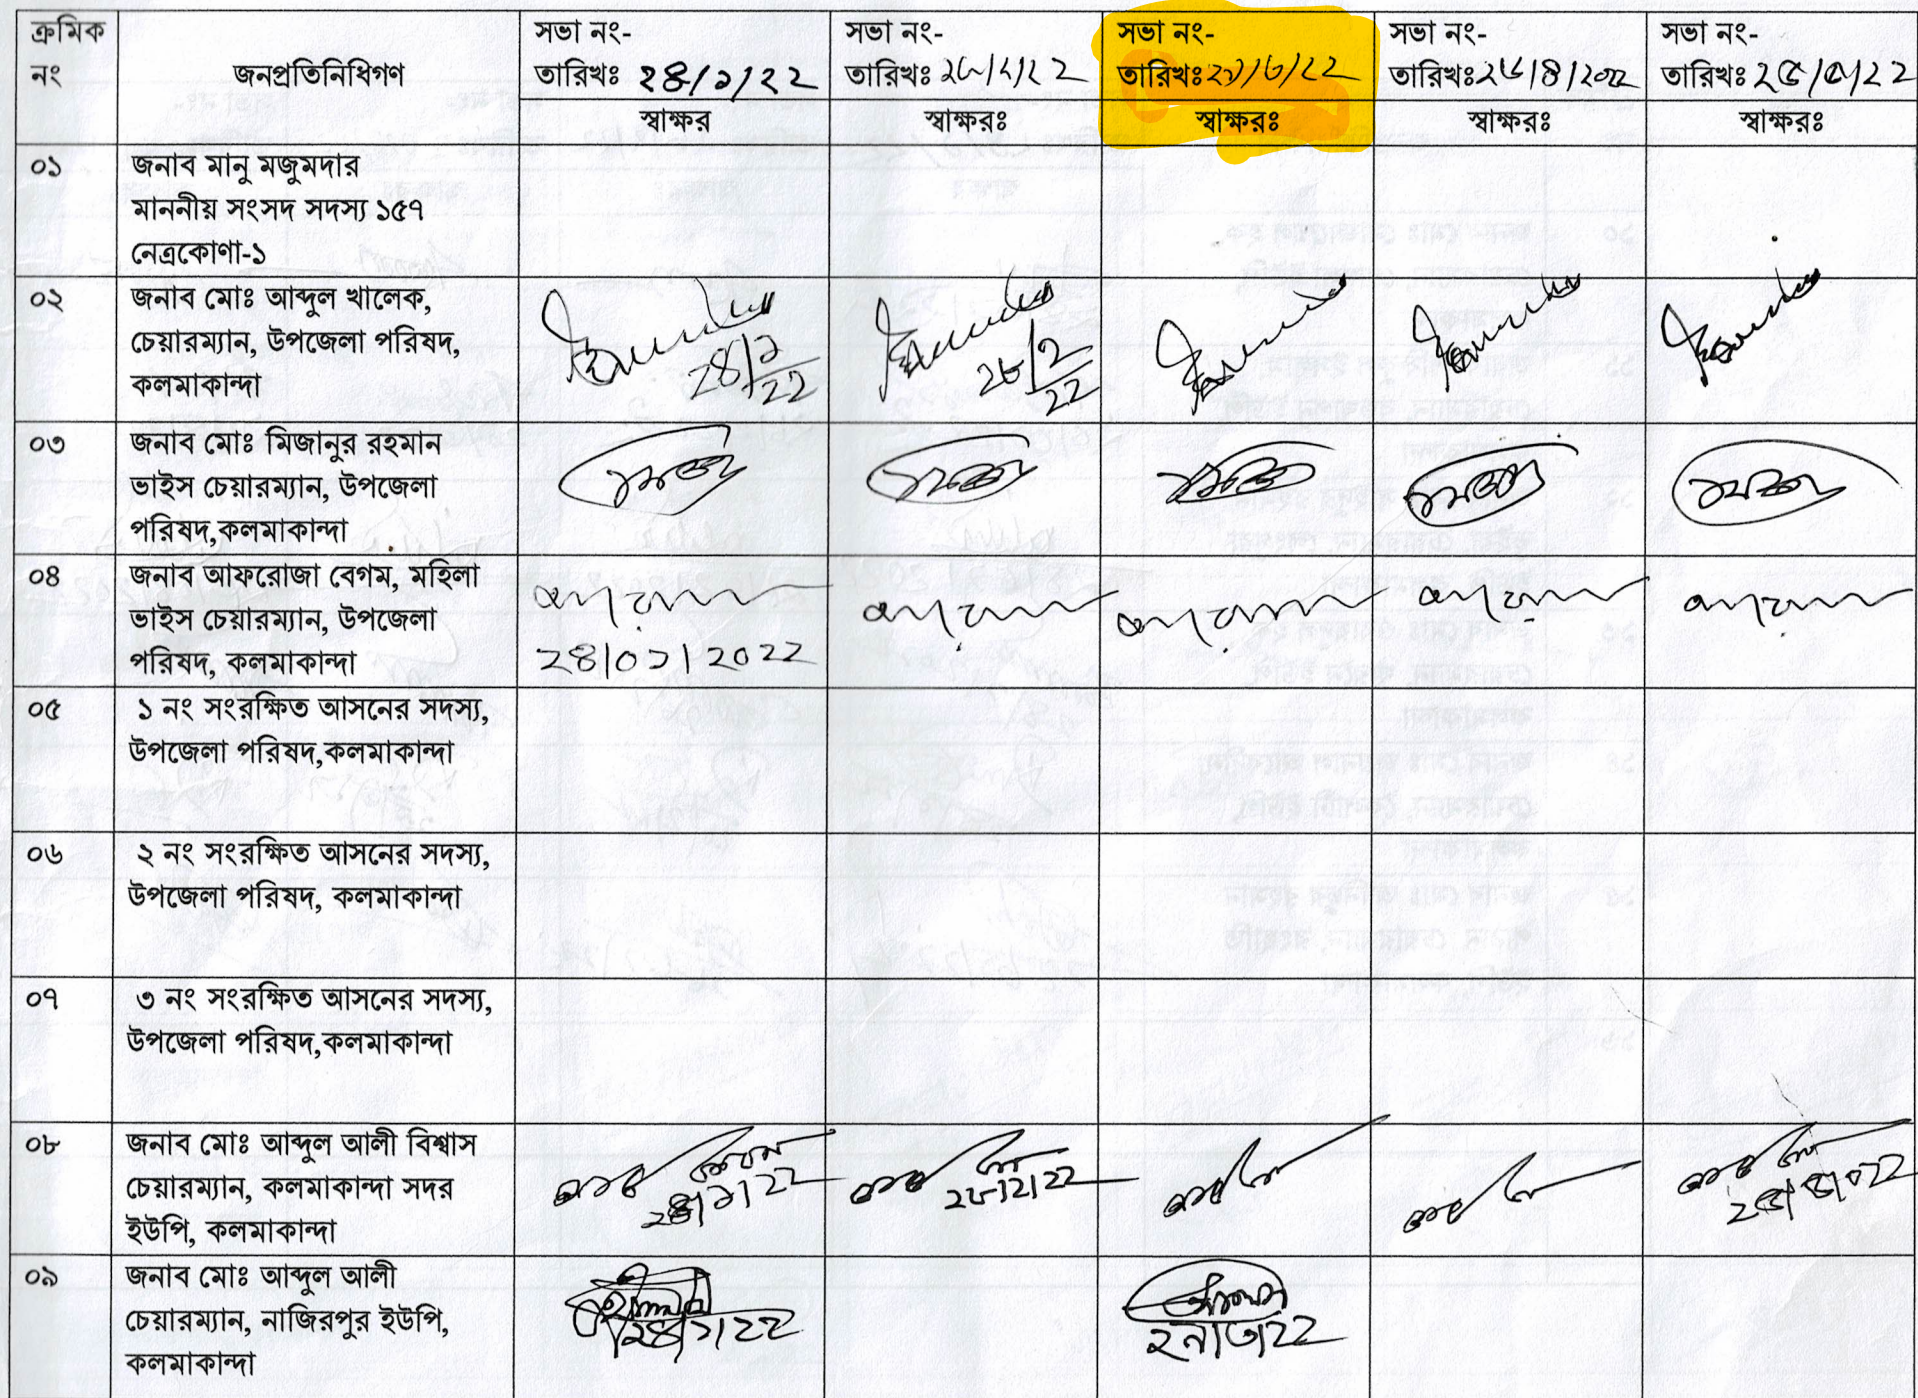 ক্রমিক নং
জনপ্রতিনিধিগণ
সভা নং-
তারিখঃ ২৪/১/২২
স্বাক্ষর
সভা নং-
তারিখঃ ২৮/২/২২
স্বাক্ষরঃ
সভা নং-
তারিখঃ ২৯/৩/২২
স্বাক্ষরঃ
সভা নং-
তারিখঃ ২৬/৪/২০২২
স্বাক্ষরঃ
সভা নং-
তারিখঃ ২৫/৫/২২
স্বাক্ষরঃ
০১
জনাব মানু মজুমদার
মাননীয় সংসদ সদস্য ১৫৭
নেত্রকোণা-১
০২
জনাব মোঃ আব্দুল খালেক,
চেয়ারম্যান, উপজেলা পরিষদ,
কলমাকান্দা
২৪/১/২২
২৮/২/২২
০৩
জনাব মোঃ মিজানুর রহমান
ভাইস চেয়ারম্যান, উপজেলা
পরিষদ,কলমাকান্দা
০৪
জনাব আফরোজা বেগম, মহিলা
ভাইস চেয়ারম্যান, উপজেলা
পরিষদ, কলমাকান্দা
২৪/০১/২০২২
০৫
১ নং সংরক্ষিত আসনের সদস্য,
উপজেলা পরিষদ,কলমাকান্দা
০৬
২ নং সংরক্ষিত আসনের সদস্য,
উপজেলা পরিষদ, কলমাকান্দা
০৭
৩ নং সংরক্ষিত আসনের সদস্য,
উপজেলা পরিষদ,কলমাকান্দা
০৮
জনাব মোঃ আব্দুল আলী বিশ্বাস
চেয়ারম্যান, কলমাকান্দা সদর
ইউপি, কলমাকান্দা
২৪/১/২২
২৮/২/২২
০৯
জনাব মোঃ আব্দুল আলী
চেয়ারম্যান, নাজিরপুর ইউপি,
কলমাকান্দা
২৪/১/২২
২৯/৩/২২